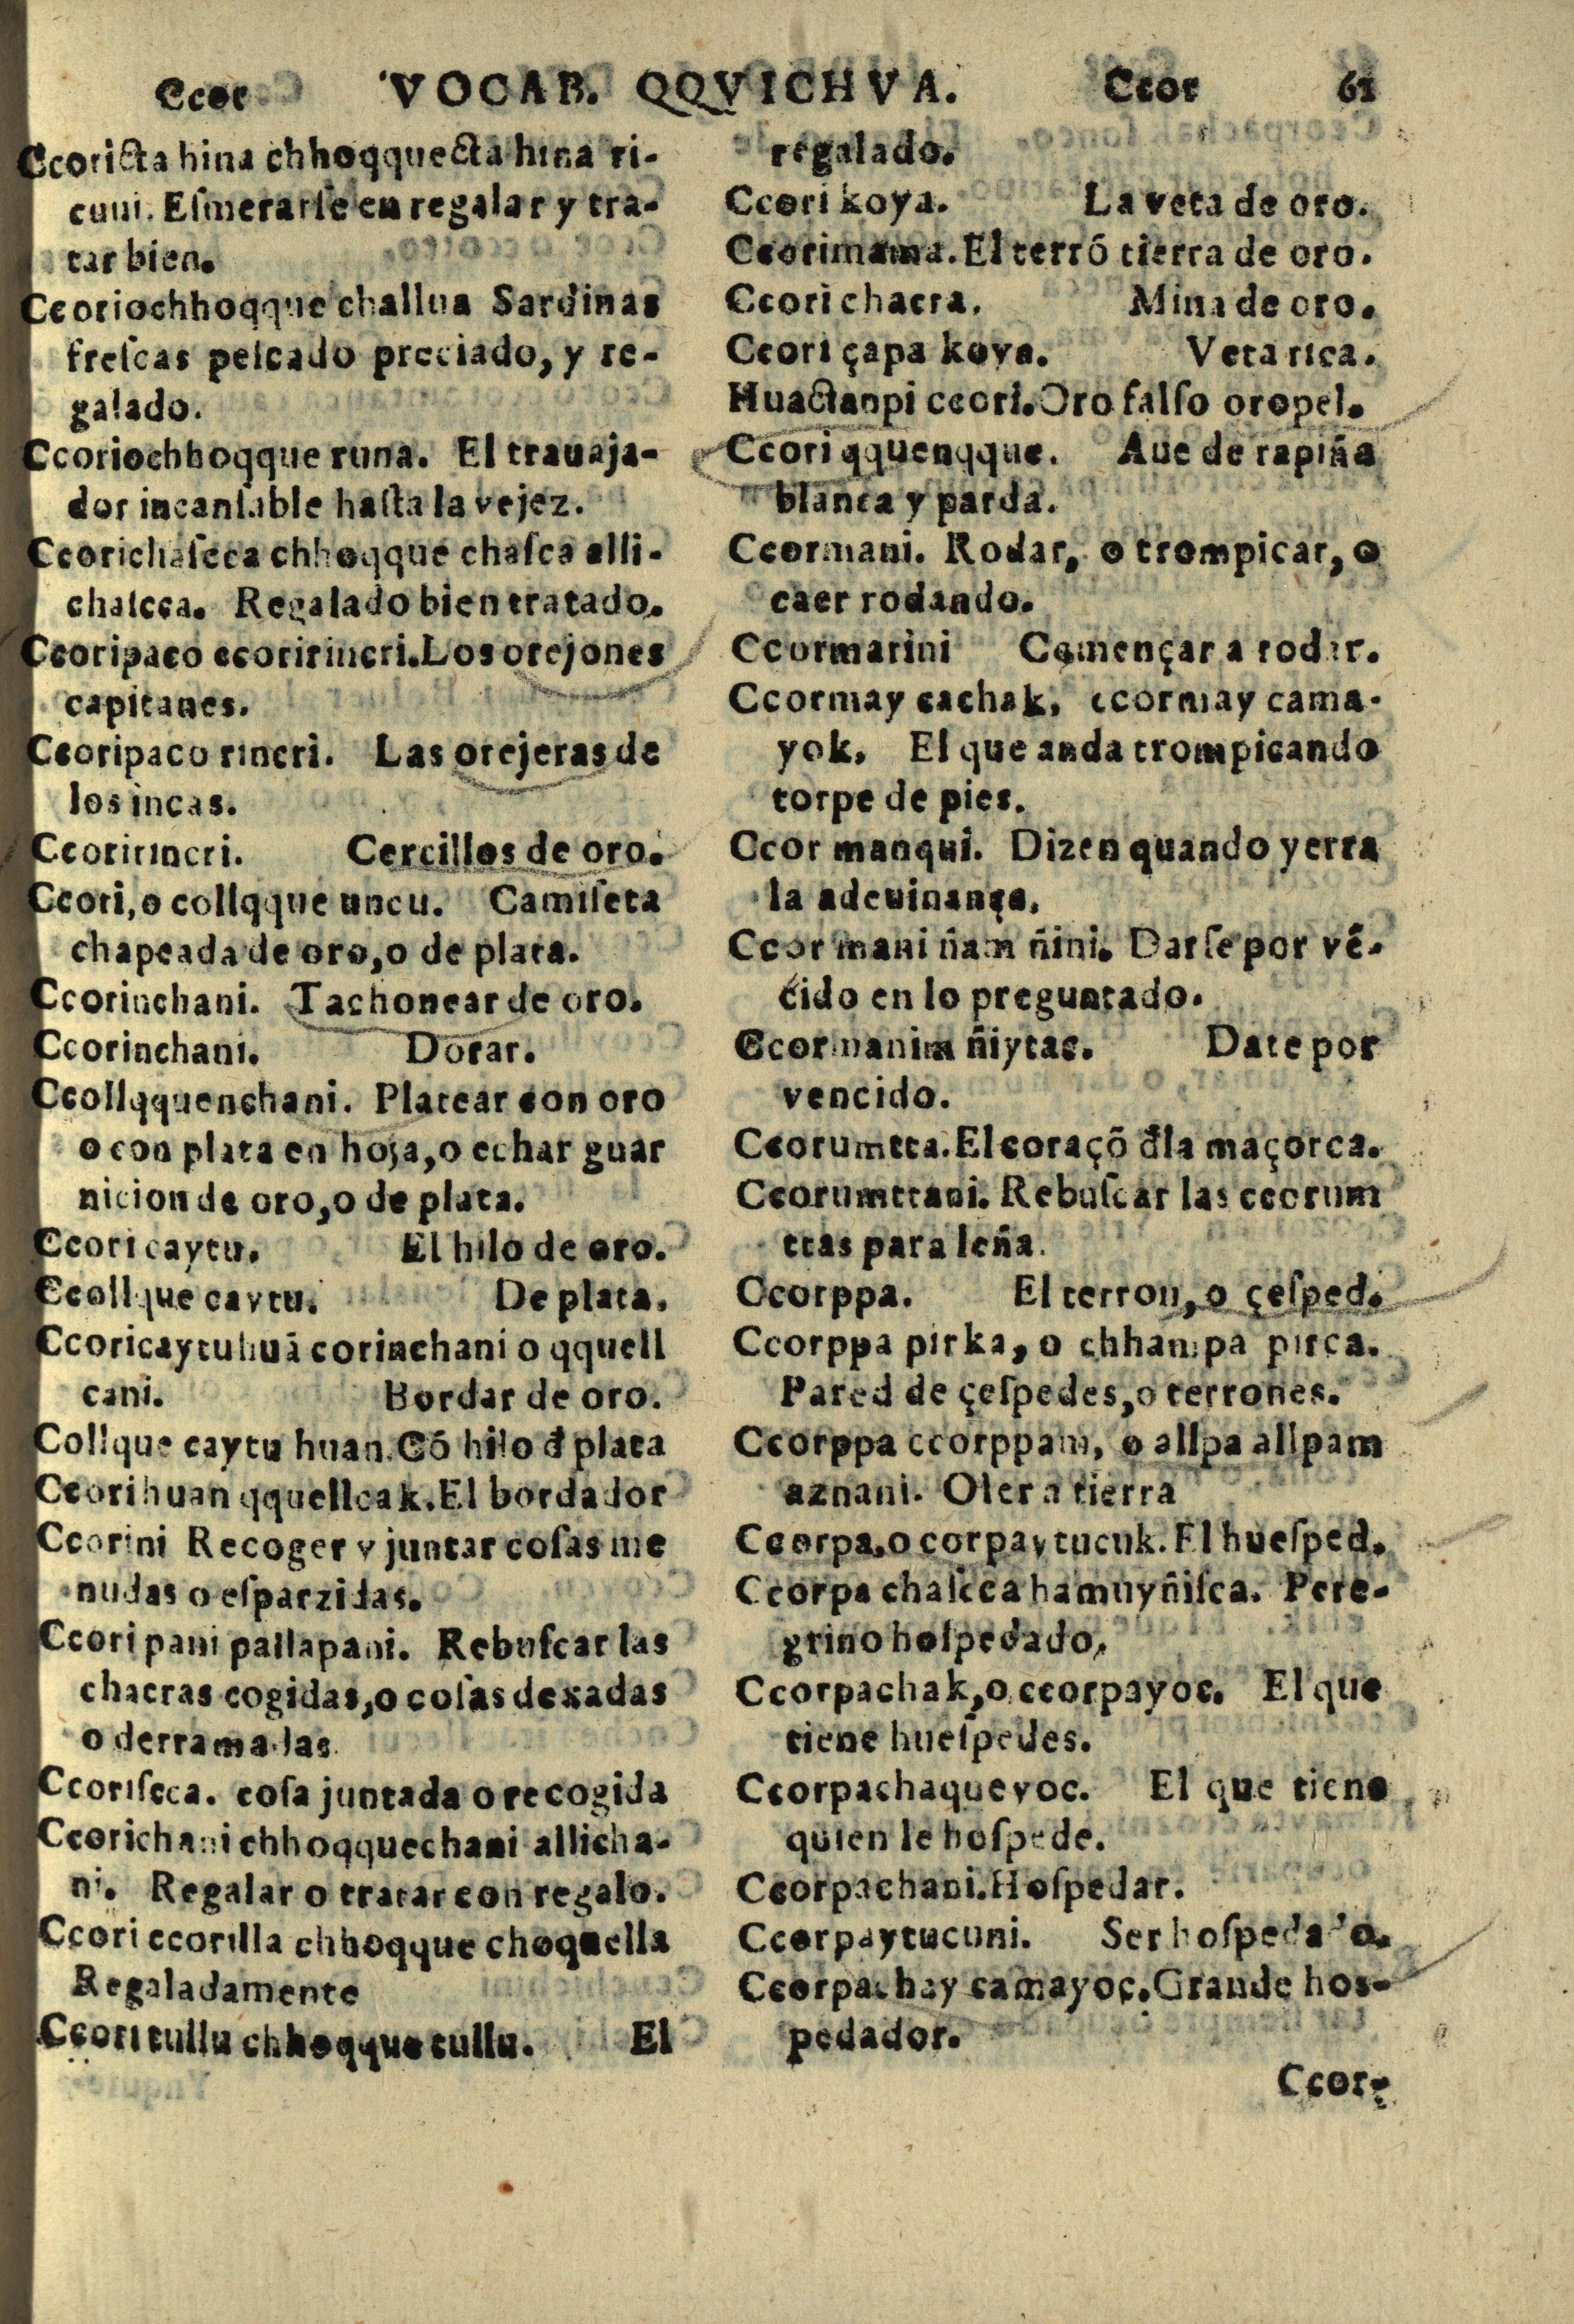 Ccor VOCAB. QQVICHVA. Ccor 61
Ccoricta hina chhoqquecta hina ri-
cuni. Eſmerarſe en regalar y tra-
tar bien.
Ccoriochhoqque challua Sardinas
freſcas peſcado preciado, y re-
galado.
Ccoriochhoqque runa. El trauaja-
dor incanſable haſta la vejez.
Ccorichaſcca chhoqque chaſca alli-
chaſcca. Regalado bien tratado.
Ccoripaco ccoririncri. Los orejones
capitanes.
Ccoripaco rincri. Las orejeras de
los incas.
Ccoririncri. Cercillos de oro.
Ccori, o collqque uncu. Camiſeta
chapeada de oro, o de plata.
Ccorinchani. Tachonear de oro.
Ccorinchani. Dorar.
Ccollqquenchani. Platear con oro
o con plata en hoja, o echar guar
nicion de oro, o de plata.
Ccori caytu. El hilo de oro.
Ccollque caytu. De plata.
Ccoricaytuhuã corinchani o qquell
cani. Bordar de oro.
Collque caytu huan. Cõ hilo đ plata
Ccorihuan qquellcak. El bordador
Ccorini Recoger y juntar coſas me
nudas o eſparzidas.
Ccori pani pallapani. Rebuſcar las
chacras cogidas, o coſas dexadas
o derramadas
Ccoriſcca. coſa juntada o recogida
Ccorichani chhoqquechani allicha-
ni. Regalar o tratar con regalo.
Ccori ccorilla chhoqque choquella
Regaladamente
Ccori tullu chhoqque tullu. El
regalado.
Ccori koya. La veta de oro.
Ccorimama. El terrõ tierra de oro.
Ccori chacra. Mina de oro.
Ccori çapa koya. Veta rica.
Huactanpi ccori. Oro falſo oropel.
Ccori qquenqque. Aue de rapiña
blanca y parda.
Ccormani. Rodar, o trompicar, o
caer rodando.
Ccormarini Començar a rodar.
Ccormay cachak, ccormay cama-
yok. El que anda trompicando
torpe de pies.
Ccor manqui. Dizen quando yerra
la adeuinança.
Ccor mani ñam ñini. Darſe por vẽ-
cido en lo preguntado.
Ccormanim ñiytac. Date por
vencido.
Ccorumtta. El coraçõ đla maçorca.
Ccorumttani. Rebuſcar las ccorum
ttas para leña.
Ccorppa. El terron, o çeſped.
Ccorppa pirka, o chhampa pirca.
Pared de çeſpedes, o terrones.
Ccorppa ccorppam, o allpa allpam
aznani. Oler a tierra
Ccorpa, o corpaytucuk. El hueſped.
Ccorpa chaſcca hamuyñiſca. Pere-
grino hoſpedado.
Ccorpachak, o ccorpayoc. El que
tiene hueſpedes.
Ccorpachaqueyoc. El que tiene
quien le hoſpede.
Ccorpachani. Hoſpedar.
Ccorpaytucuni. Ser hoſpedado.
Ccorpachay camayoc. Grande hos-
pedador.
Ccor-